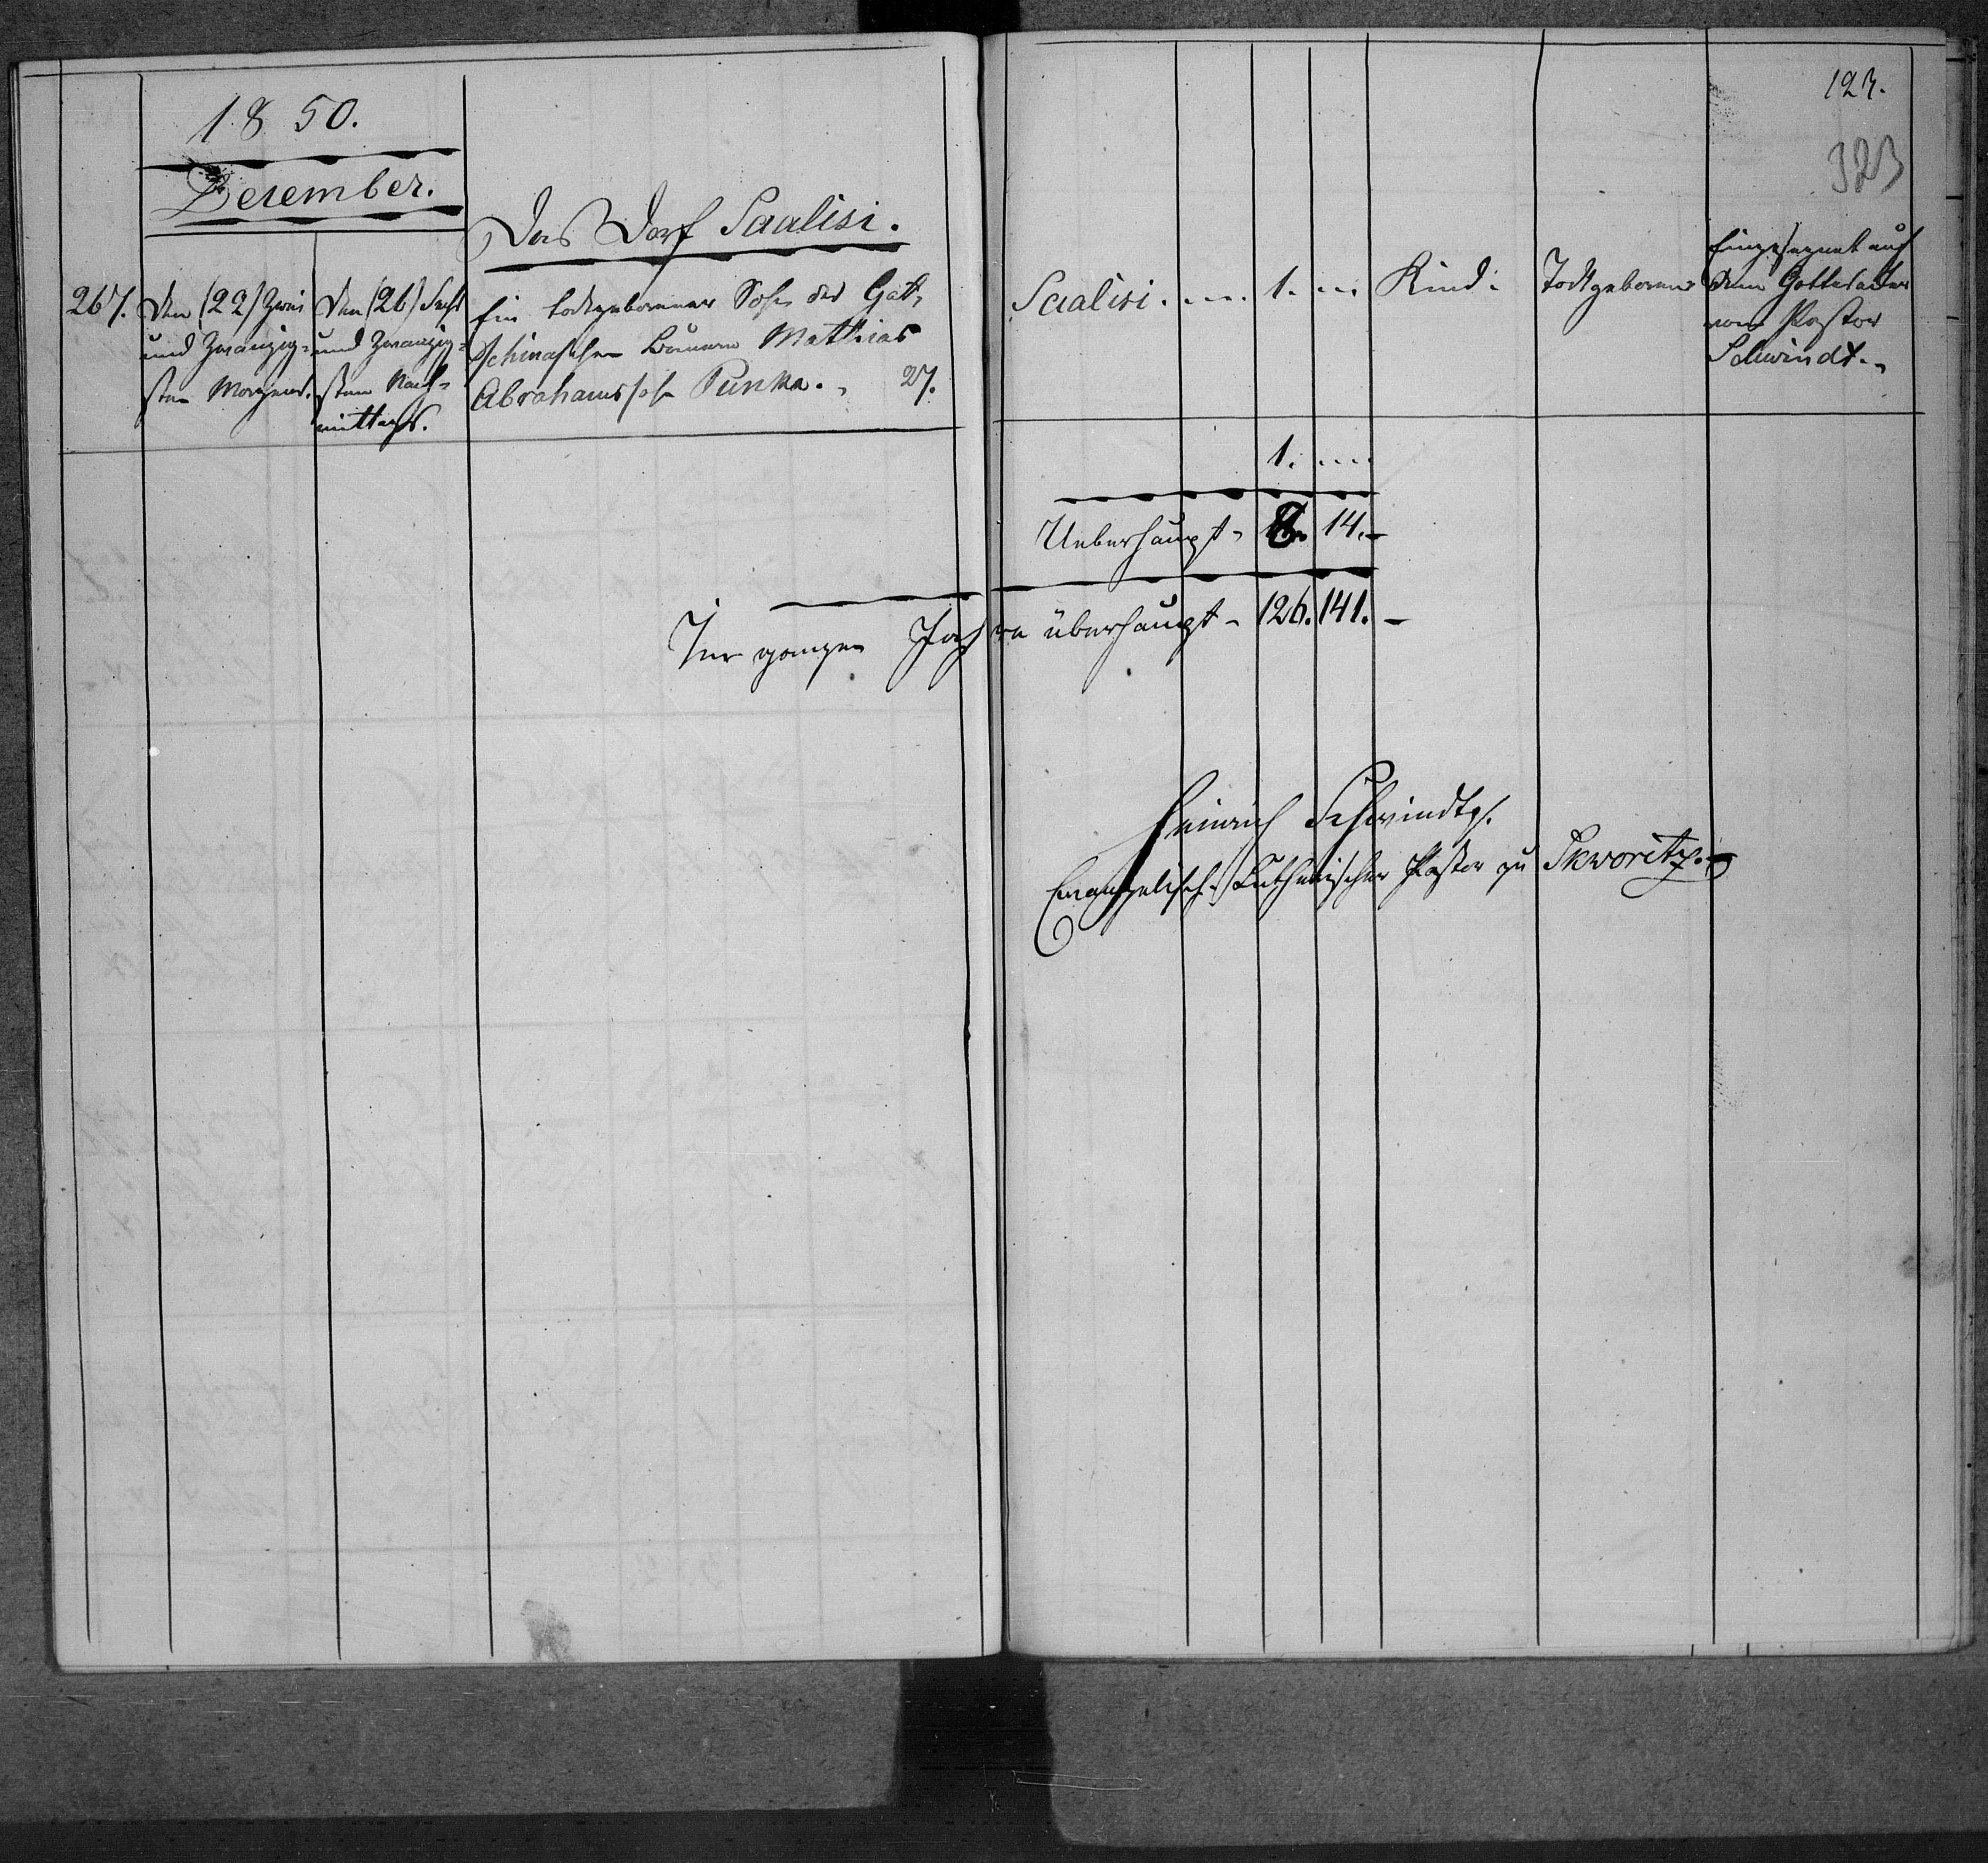 1850.
December.
Das Dorf Saalisi.
267.
Den (22) zwei
und zwanzig-
sten Morgens.
Den (26) Sechs
und zwanzig-
sten Nach-
mittags.
Ein todtgeborener Sohn des Gat-
schinaschen Bauern Mathias
Abrahamssohn Punka. 27.
123.
323
Saalisi. .... 1. ... Kind. Todtgeboren.
Eingesegnet auf
dem Gottesacker
vom Pastor
Schwindt.
1. ....
Ueberhaupt - 14.-
Im ganzen Jahre überhaupt - 126. 141. -
Heinrich Schwindt
Evangelisch-Lutherischer Pastor zu Skworitz.